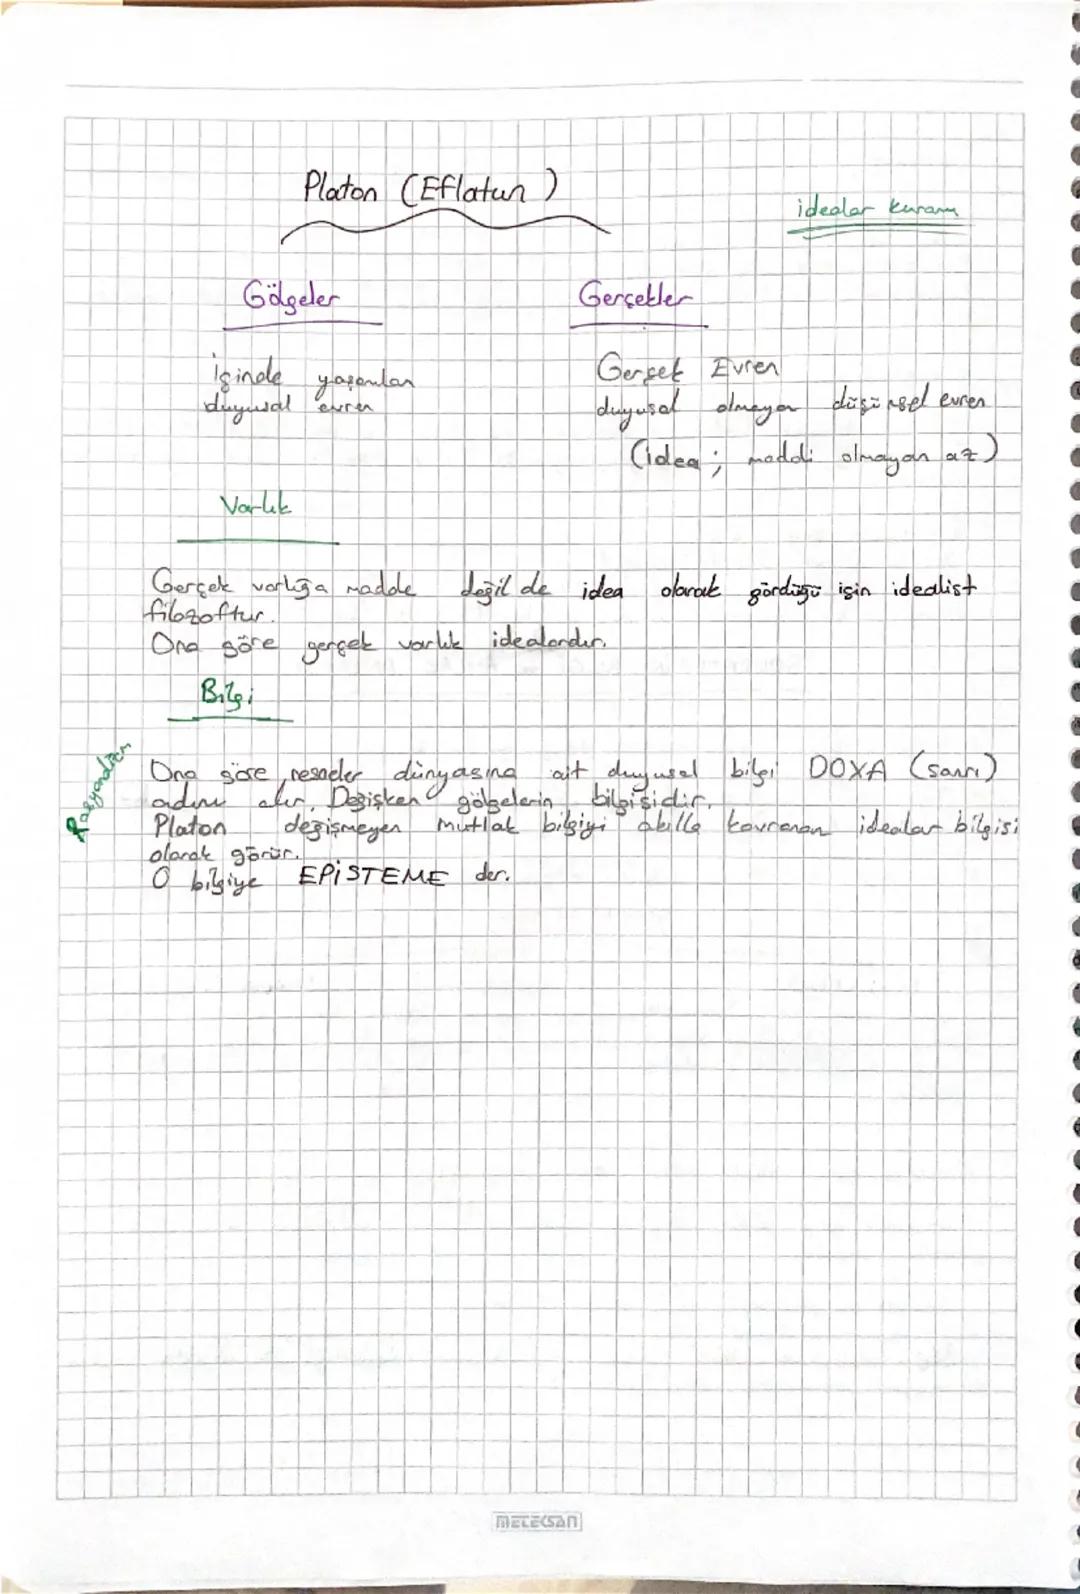 Platon (Eflatun)
idealar kuramı
Gölgeler
Gerçekler
İçinde yaşanılan
duyusal evren
Gerçek Evren
duyusal olmayan düşünsel evren
(idea; maddi olmayan öz)
Varlık
Gerçek varlığa madde değil de idea olarak gördüğü için idealist
filozoftur.
Ona göre gerçek varlık idealardır.
Bilgi
Rasyonalizm
Ona göre nesneler dünyasına ait duyusal bilgi DOXA (sanı)
adını alır. Değişken gölgelerin bilgisidir.
Platon değişmeyen mutlak bilgiyi akılla kavranan idealar bilgisi
olarak görür.
O bilgiye EPİSTEME der.
METEKSAN